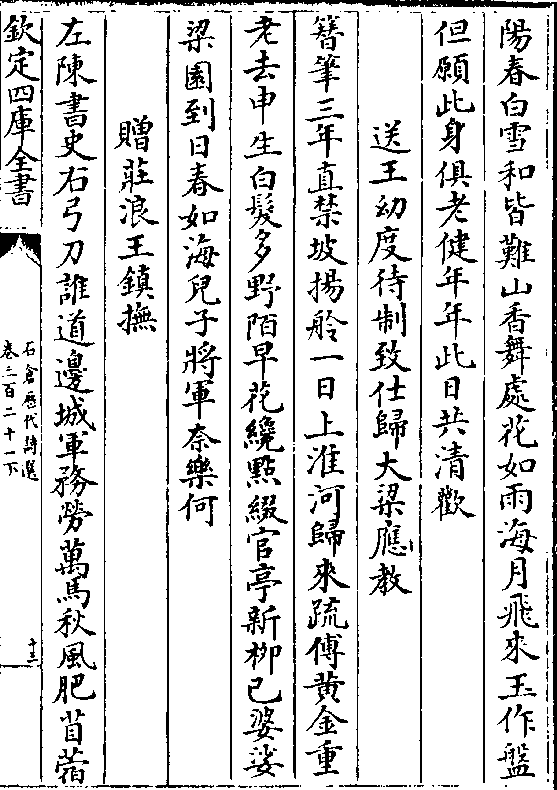 陽春白雪和皆難山香舞處花如雨海月飛來玉作盤
但願此身俱老健年年此日共清歡
送王幼度待制致仕歸大梁應教
簪筆三年直禁坡揚舲一日上淮河歸來疏傅黃金重
老去申生白髮多野陌早花纔點綴官亭新柳已婆娑
梁園到日春如海兒子將軍奈樂何
贈莊浪王鎮撫
左陳書史右弓刀誰道邊城軍務勞萬馬秋風肥苜蓿
欽定四庫全書
石倉歷代詩選
卷三百二十一下
十三